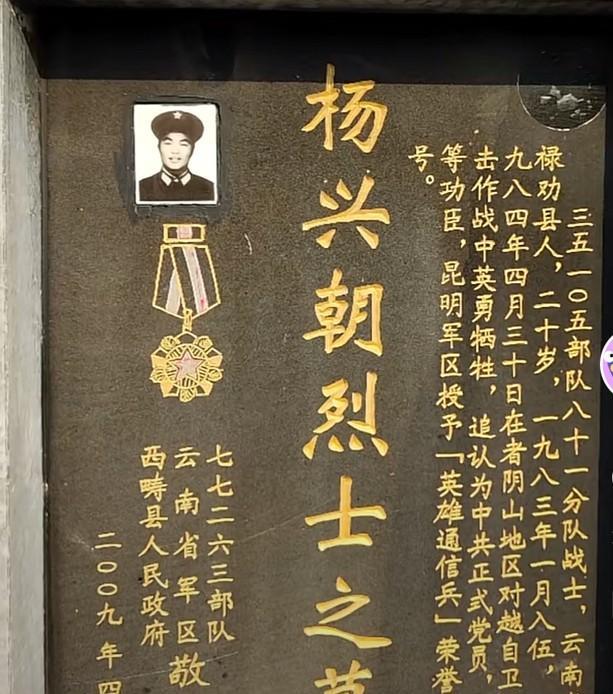 三五一〇五部队八十一分队战士，云南
禄劝县人，二十岁，一九八三年一月入伍，
九八四年四月三十日在者阴山地区对越自卫
击作战中英勇牺牲，追认为中共正式党员，
等功臣，昆明军区授予「英雄通信兵」荣誉
号。
杨兴朝烈士之墓
七七二六三部队
云南省军区敬
西畴县人民政府
二〇〇九年四